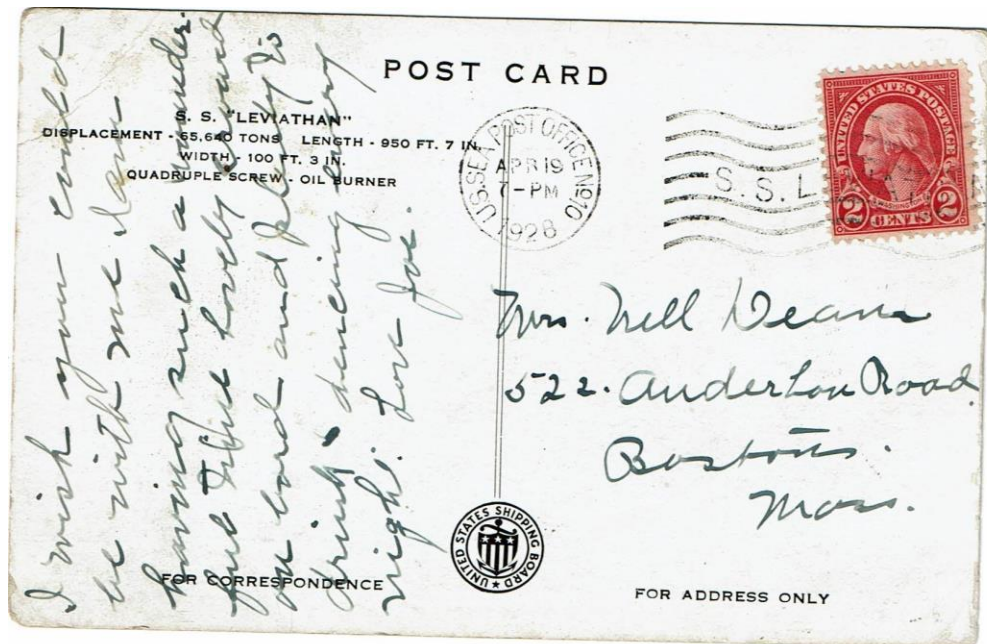 POST CARD
S. S. "LEVIATHAN"
DISPLACEMENT - 65,640 TONS LENGTH - 950 FT. 7 IN.
WIDTH - 100 FT. 3 IN.
QUADRUPLE SCREW - OIL BURNER
U.S. SEA POST OFFICE No 10
APR 19
7-PM
1928
S.S.L
UNITED STATES POSTAGE
WASHINGTON
2 CENTS 2
I wish you could
be with me I am
having such a wonder-
ful lovely
on bord and plenty to
drink dencing every
night. Love Joe.
Mrs. Nell Deane
522. Road
Boston.
Mass.
UNITED STATES SHIPPING BOARD
FOR CORRESPONDENCE
FOR ADDRESS ONLY